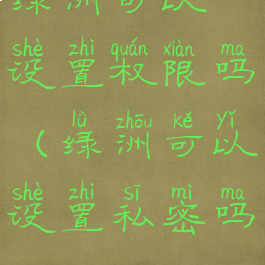 绿洲可以
shè zhì quán xiàn ma
设置权限吗
lǜ zhōu kě yǐ
（绿洲可以
shè zhì sī mì ma
设置私密吗